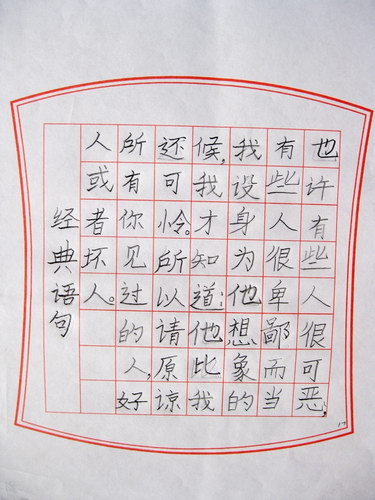 也许有些人很可恶,
有些人很卑鄙而当
我设身为他想象的
候,我才知道:他比我
还可怜。所以请原谅
所有你见过的人,好
人或者坏人。
经典语句